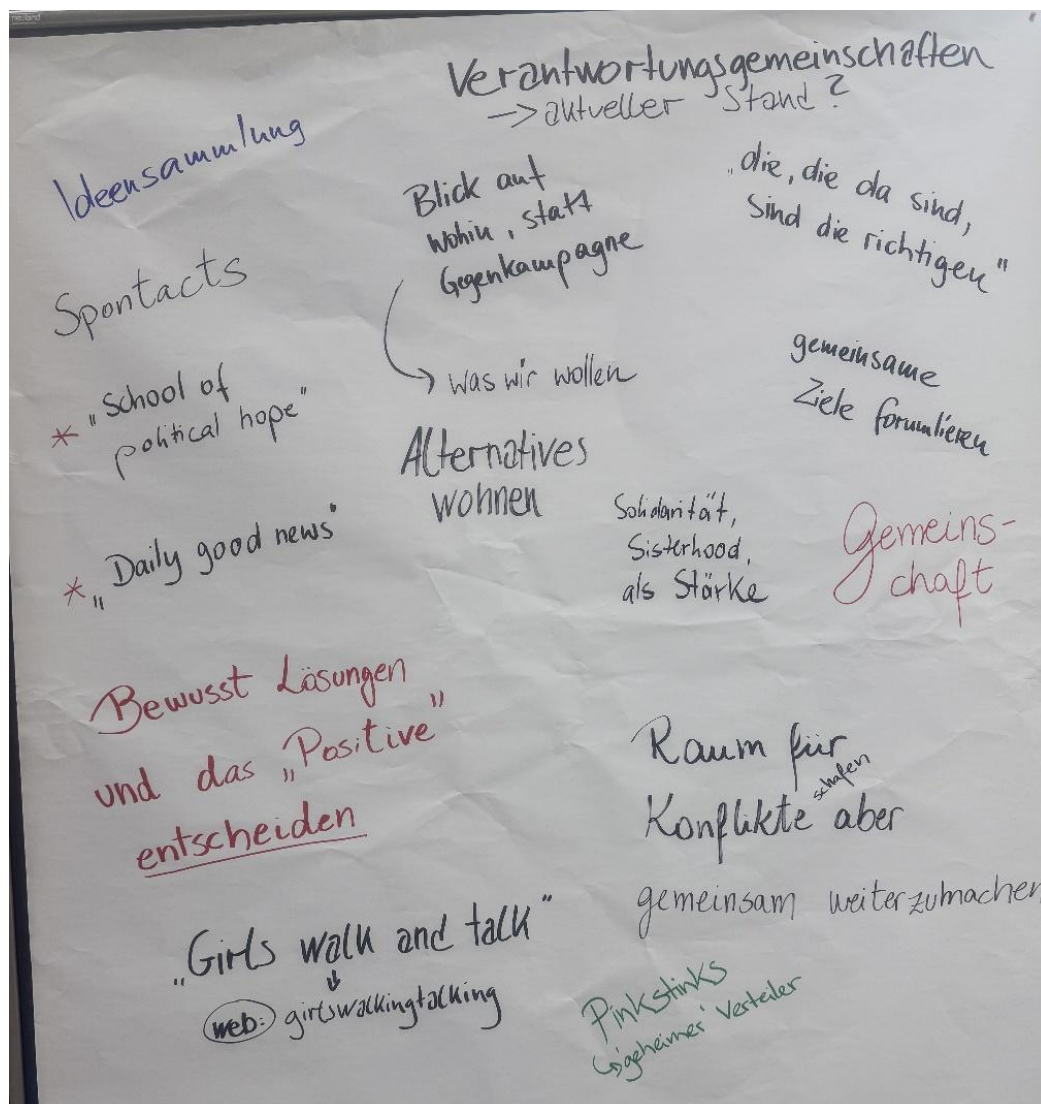 Verantwortungsgemeinschaften
-> aktueller Stand?
Ideensammlung
Blick auf
wohin, statt
Gegenkampagne
-> was wir wollen
"die, die da sind,
sind die richtigen"
Spontacts
* "School of
political hope"
gemeinsame
Ziele forumlieren
Alternatives
wohnen
* „Daily good news"
Solidarität,
Sisterhood,
als Stärke
Gemeins-
chaft
Bewusst Lösungen
und das „Positive"
entscheiden
Raum für
Konflikte schafen aber
gemeinsam weiterzumachen
„Girls walk and talk"
web: girlswalkingtalking
Pinkstinks
↳ 'geheimer' Verteiler